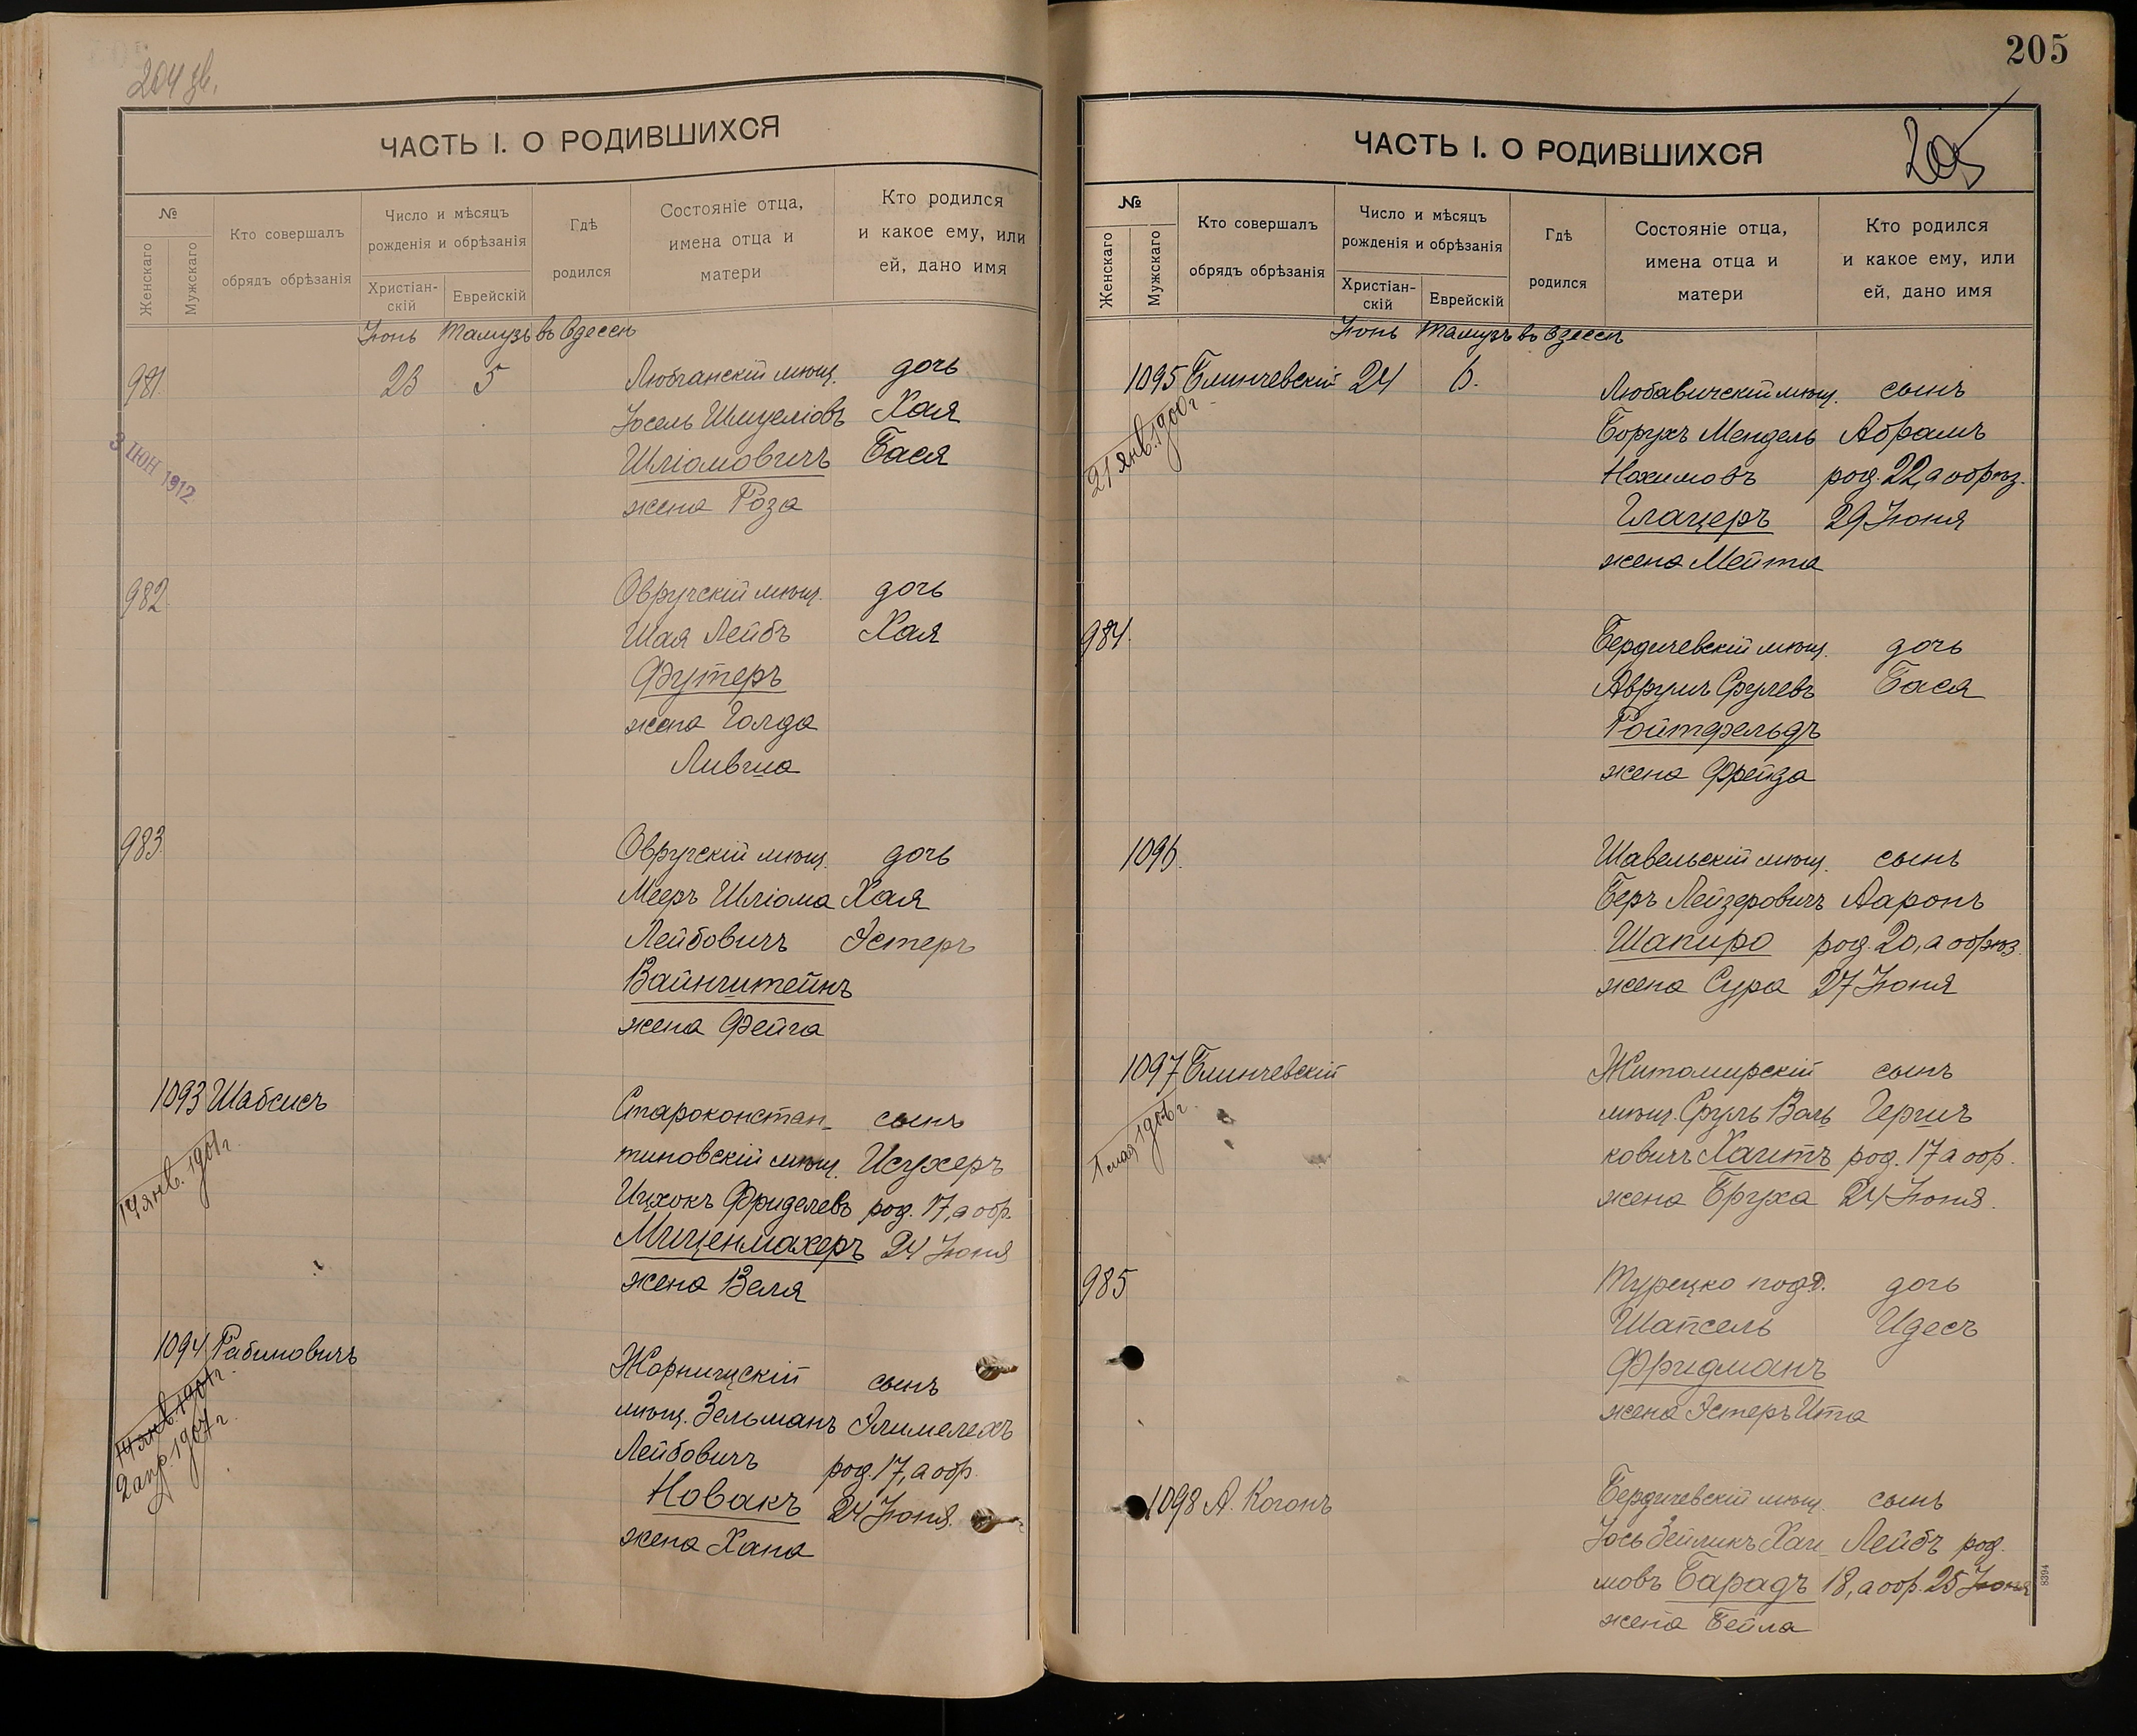 204 зв.
ЧАСТЬ I. О РОДИВШИХСЯ
№
Женскаго
Мужскаго
Кто совершалъ
обрядъ обрѣзанія
Число и мѣсяцъ
рожденія и обрѣзанія
Христіан-
скій
Еврейскій
Гдѣ
родился
Состояніе отца,
имена отца и
матери
Кто родился
и какое ему, или
ей, дано имя
Іюнь Тамузъ въ Одессѣ
981. 23 5 мѣщ. дочь
3 ІЮН 1912
Іосель Шмуеліовъ Хая
Шліомовичъ Бася
жена Роза
982. Овручскій мѣщ. дочь
Шая Лейбъ Хая
Футеръ
жена Голда
Лившa
983. Овручскій мѣщ. дочь
Мееръ Шліома Хая
Лейбовичъ Эстеръ
Вайнштейнъ
жена Фейга
1093 Шабсисъ Староконстан-
сынъ
14 янв. 1901 г.
тиновскій мѣщ. Исухеръ
Ицхокъ род. 17, а обр.
24 Іюня
жена Веля
1094 Рабиновичъ
сынъ
14 янв. 1901 г.
2 апр. 1907 г.
мѣщ. Зельманъ Элимелехъ
Лейбовичъ род. 17, а обр.
Новакъ 24 Іюня.
жена Хана
205
ЧАСТЬ I. О РОДИВШИХСЯ
205
№
Женскаго
Мужскаго
Кто совершалъ
обрядъ обрѣзанія
Число и мѣсяцъ
рожденія и обрѣзанія
Христіан-
скій
Еврейскій
Гдѣ
родился
Состояніе отца,
имена отца и
матери
Кто родился
и какое ему, или
ей, дано имя
Іюнь Тамузъ въ Одессѣ
1095 Блинчевскій 24 6. Любавичскій мѣщ. сынъ
21 янв. 1900 г.
Борухъ Мендель Абрамъ
Нохимовъ род. 22, а обрѣз.
Глацеръ 29 Іюня
жена Мейта
984. Бердичевскій мѣщ. дочь
Аврумъ Срулевъ Бася
Ройтфельдъ
жена Фрейда
1096. Шавельскій мѣщ. сынъ
Беръ Лейзеровичъ Ааронъ
Шапиро род. 20, а обрѣз.
жена Сура 27 Іюня
1097 Блинчевскій Житомирскій сынъ
мая
мѣщ. Сруль Воль Гершъ
ковичъ Хаитъ род. 17 а обр.
жена Бруха 24 Іюня.
985 Турецко подд. дочь
Шапсель Идесъ
Фридманъ
жена Эстеръ Ита
1098 А. Коганъ Бердичевскій мѣщ. сынъ
Іось Зейликъ Хаи Лейбъ род.
мовъ Барадъ 18, а обр. 25 Іюня
жена Бейла
8394